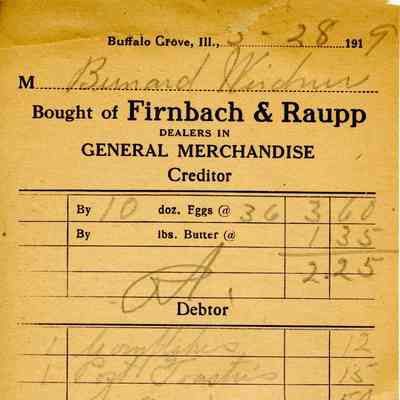 Buffalo Grove, Ill., 5-28 1919
M Bernard Weidner
Bought of Firnbach & Raupp
DEALERS IN
GENERAL MERCHANDISE
Creditor
By 10 doz. Eggs @ 36 3 60
By lbs. Butter @ 1 35
2.25
Debtor
1 Corn flakes 12
1 Post Toasties 15
50